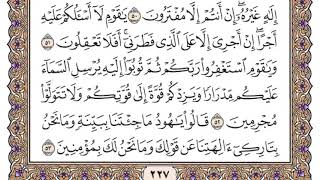 إِلَٰهٍ غَيْرُهُۥٓ إِنْ أَنتُمْ إِلَّا مُفْتَرُونَ ۝٥٠ يَٰقَوْمِ لَآ أَسْـَٔلُكُمْ عَلَيْهِ
أَجْرًا إِنْ أَجْرِىَ إِلَّا عَلَى ٱلَّذِى فَطَرَنِىٓ أَفَلَا تَعْقِلُونَ ۝٥١
وَيَٰقَوْمِ ٱسْتَغْفِرُوا۟ رَبَّكُمْ ثُمَّ تُوبُوٓا۟ إِلَيْهِ يُرْسِلِ ٱلسَّمَآءَ
عَلَيْكُم مِّدْرَارًا وَيَزِدْكُمْ قُوَّةً إِلَىٰ قُوَّتِكُمْ وَلَا تَتَوَلَّوْا۟
مُجْرِمِينَ ۝٥٢ قَالُوا۟ يَٰهُودُ مَا جِئْتَنَا بِبَيِّنَةٍ وَمَا نَحْنُ
بِتَارِكِىٓ ءَالِهَتِنَا عَن قَوْلِكَ وَمَا نَحْنُ لَكَ بِمُؤْمِنِينَ ۝٥٣
٢٢٧